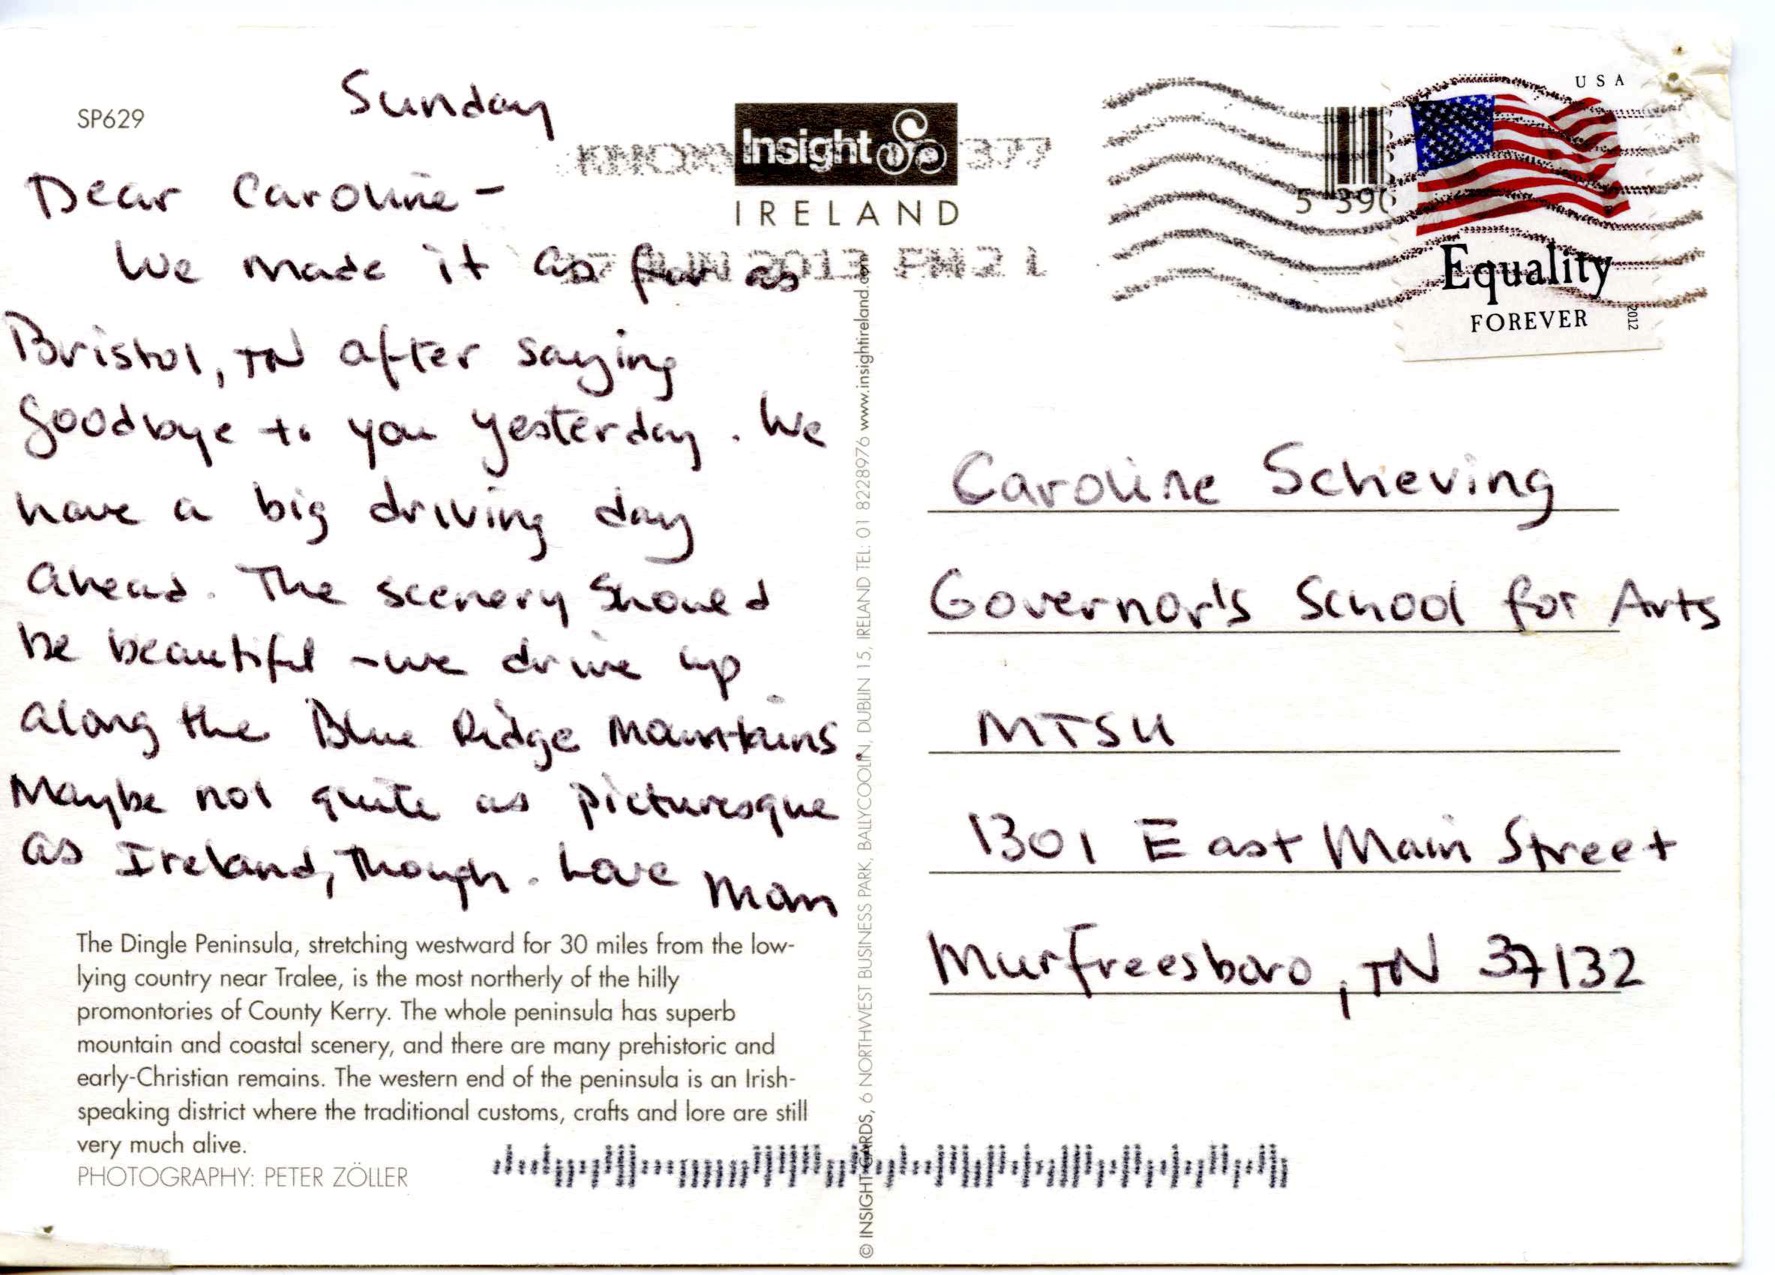 SP629
Sunday
Dear Caroline -
We made it as far as
Bristol, TN after saying
goodbye to you yesterday. We
have a big driving day
ahead. The scenery should
be beautiful - we drive up
along the Blue Ridge Mountains.
Maybe not quite as picturesque
as Ireland, though. Love Mom
The Dingle Peninsula, stretching westward for 30 miles from the low-
lying country near Tralee, is the most northerly of the hilly
promontories of County Kerry. The whole peninsula has superb
mountain and coastal scenery, and there are many prehistoric and
early-Christian remains. The western end of the peninsula is an Irish-
speaking district where the traditional customs, crafts and lore are still
very much alive.
PHOTOGRAPHY: PETER ZÖLLER
Insight
IRELAND
377
JUN 2013 PM 2 L
© INSIGHT CARDS, 6 NORTHWEST BUSINESS PARK, BALLYCOOLIN, DUBLIN 15, IRELAND TEL: 01 8228976 www.insightireland.com
5 390
USA
Equality
FOREVER
2012
Caroline Scheving
Governor's School for Arts
MTSU
1301 East Main Street
Murfreesboro, TN 37132